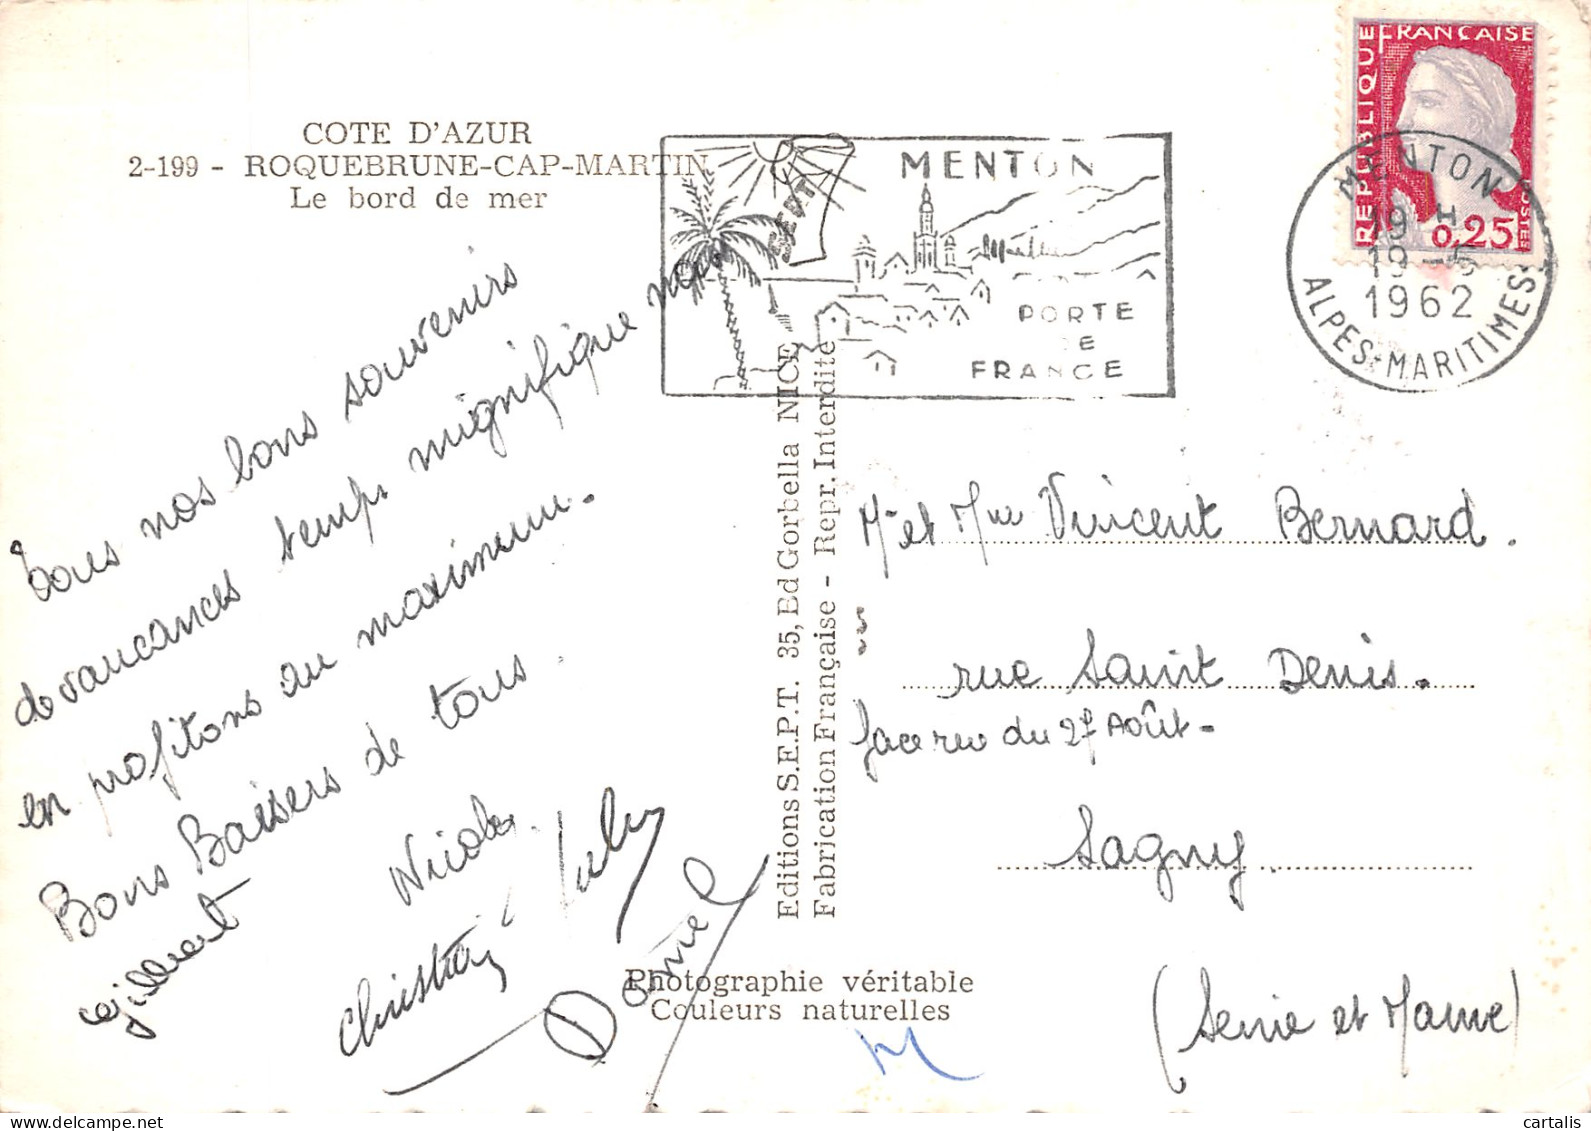 COTE D'AZUR
2-199 - ROQUEBRUNE-CAP-MARTIN
Le bord de mer
Tous nos bons souvenirs
de vaucances temps magnifique nous
en profitons au maximum.
Bons Baisers de tous.
Gilbert
Nicole
Christian
Daniel
Editions S.E.P.T. 35, Ed Gorbella NICE
Fabrication Française - Repr. Interdite
SEPT
Photographie véritable
Couleurs naturelles
MENTON
PORTE
DE
FRANCE
REPUBLIQUE FRANÇAISE
0,25
POSTES
MENTON
19 H
19 - 5
1962
ALPES-MARITIMES
Mr et Mme Vincent Bernard.
rue Saint Denis.
face rue du 27 Août -
Lagny
(Seine et Marne)
cartalis